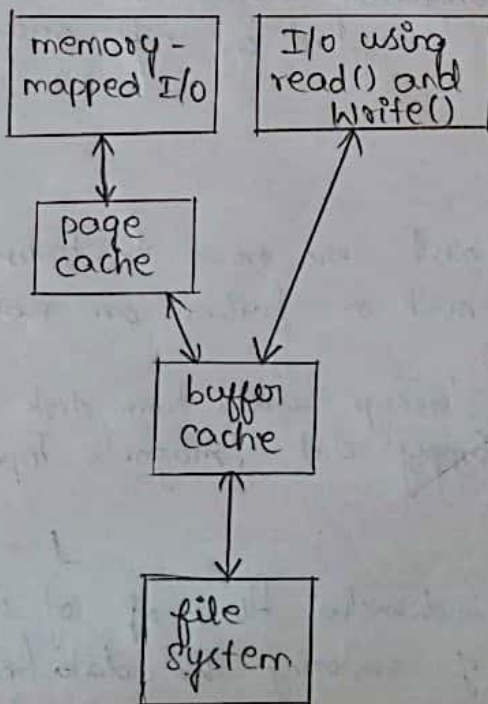 memory-
mapped I/o
I/o using
read() and
Write()
page
cache
buffer
cache
file
system